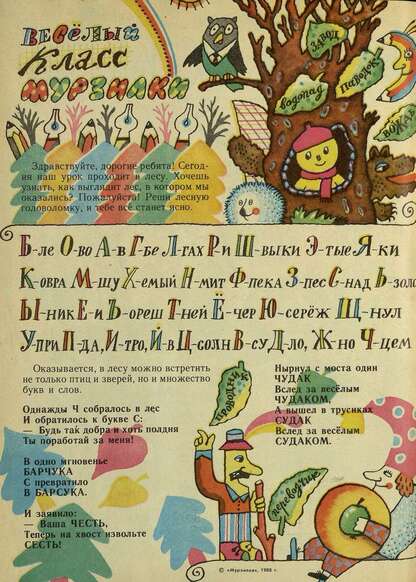 ВЕСЁЛЫЙ
Класс
МУРЗИЛКИ
ЗАВОД
Паводок
Водопад
ВОЖАК
Здравствуйте, дорогие ребята! Сегод-
ня наш урок проходит в лесу. Хочешь
узнать, как выглядит лес, в котором мы
оказались? Пожалуйста! Реши лесную
головоломку, и тебе всё станет ясно.
Б-ле О-во А-в Г-бе Л-гах Р-и Ш-выки Э-тые Я-ки
К-овра М-шу Х-емый Н-мит Ф-пека З-пес С-над Ь-золо
Ы-ник Е-и Ъ-ореш Т-ней Ё-чер Ю-серёж Щ-нул
У-при П-да, И-тро, Й-в Ц-солн В-су Д-ло, Ж-но Ч-цем
Оказывается, в лесу можно встретить
не только птиц и зверей, но и множество
букв и слов.
Однажды Ч собралось в лес
И обратилось к букве С:
— Будь так добра и хоть полдня
Ты поработай за меня!
В одно мгновенье
БАРЧУКА
С превратило
В БАРСУКА.
И заявило:
— Ваша ЧЕСТЬ,
Теперь на хвост извольте
СЕСТЬ!
Проводник
Нырнул с моста один
ЧУДАК
Вслед за весёлым
ЧУДАКОМ.
А вышел в трусиках
СУДАК
Вслед за весёлым
СУДАКОМ.
переводчик
© «Мурзилка», 1988 г.